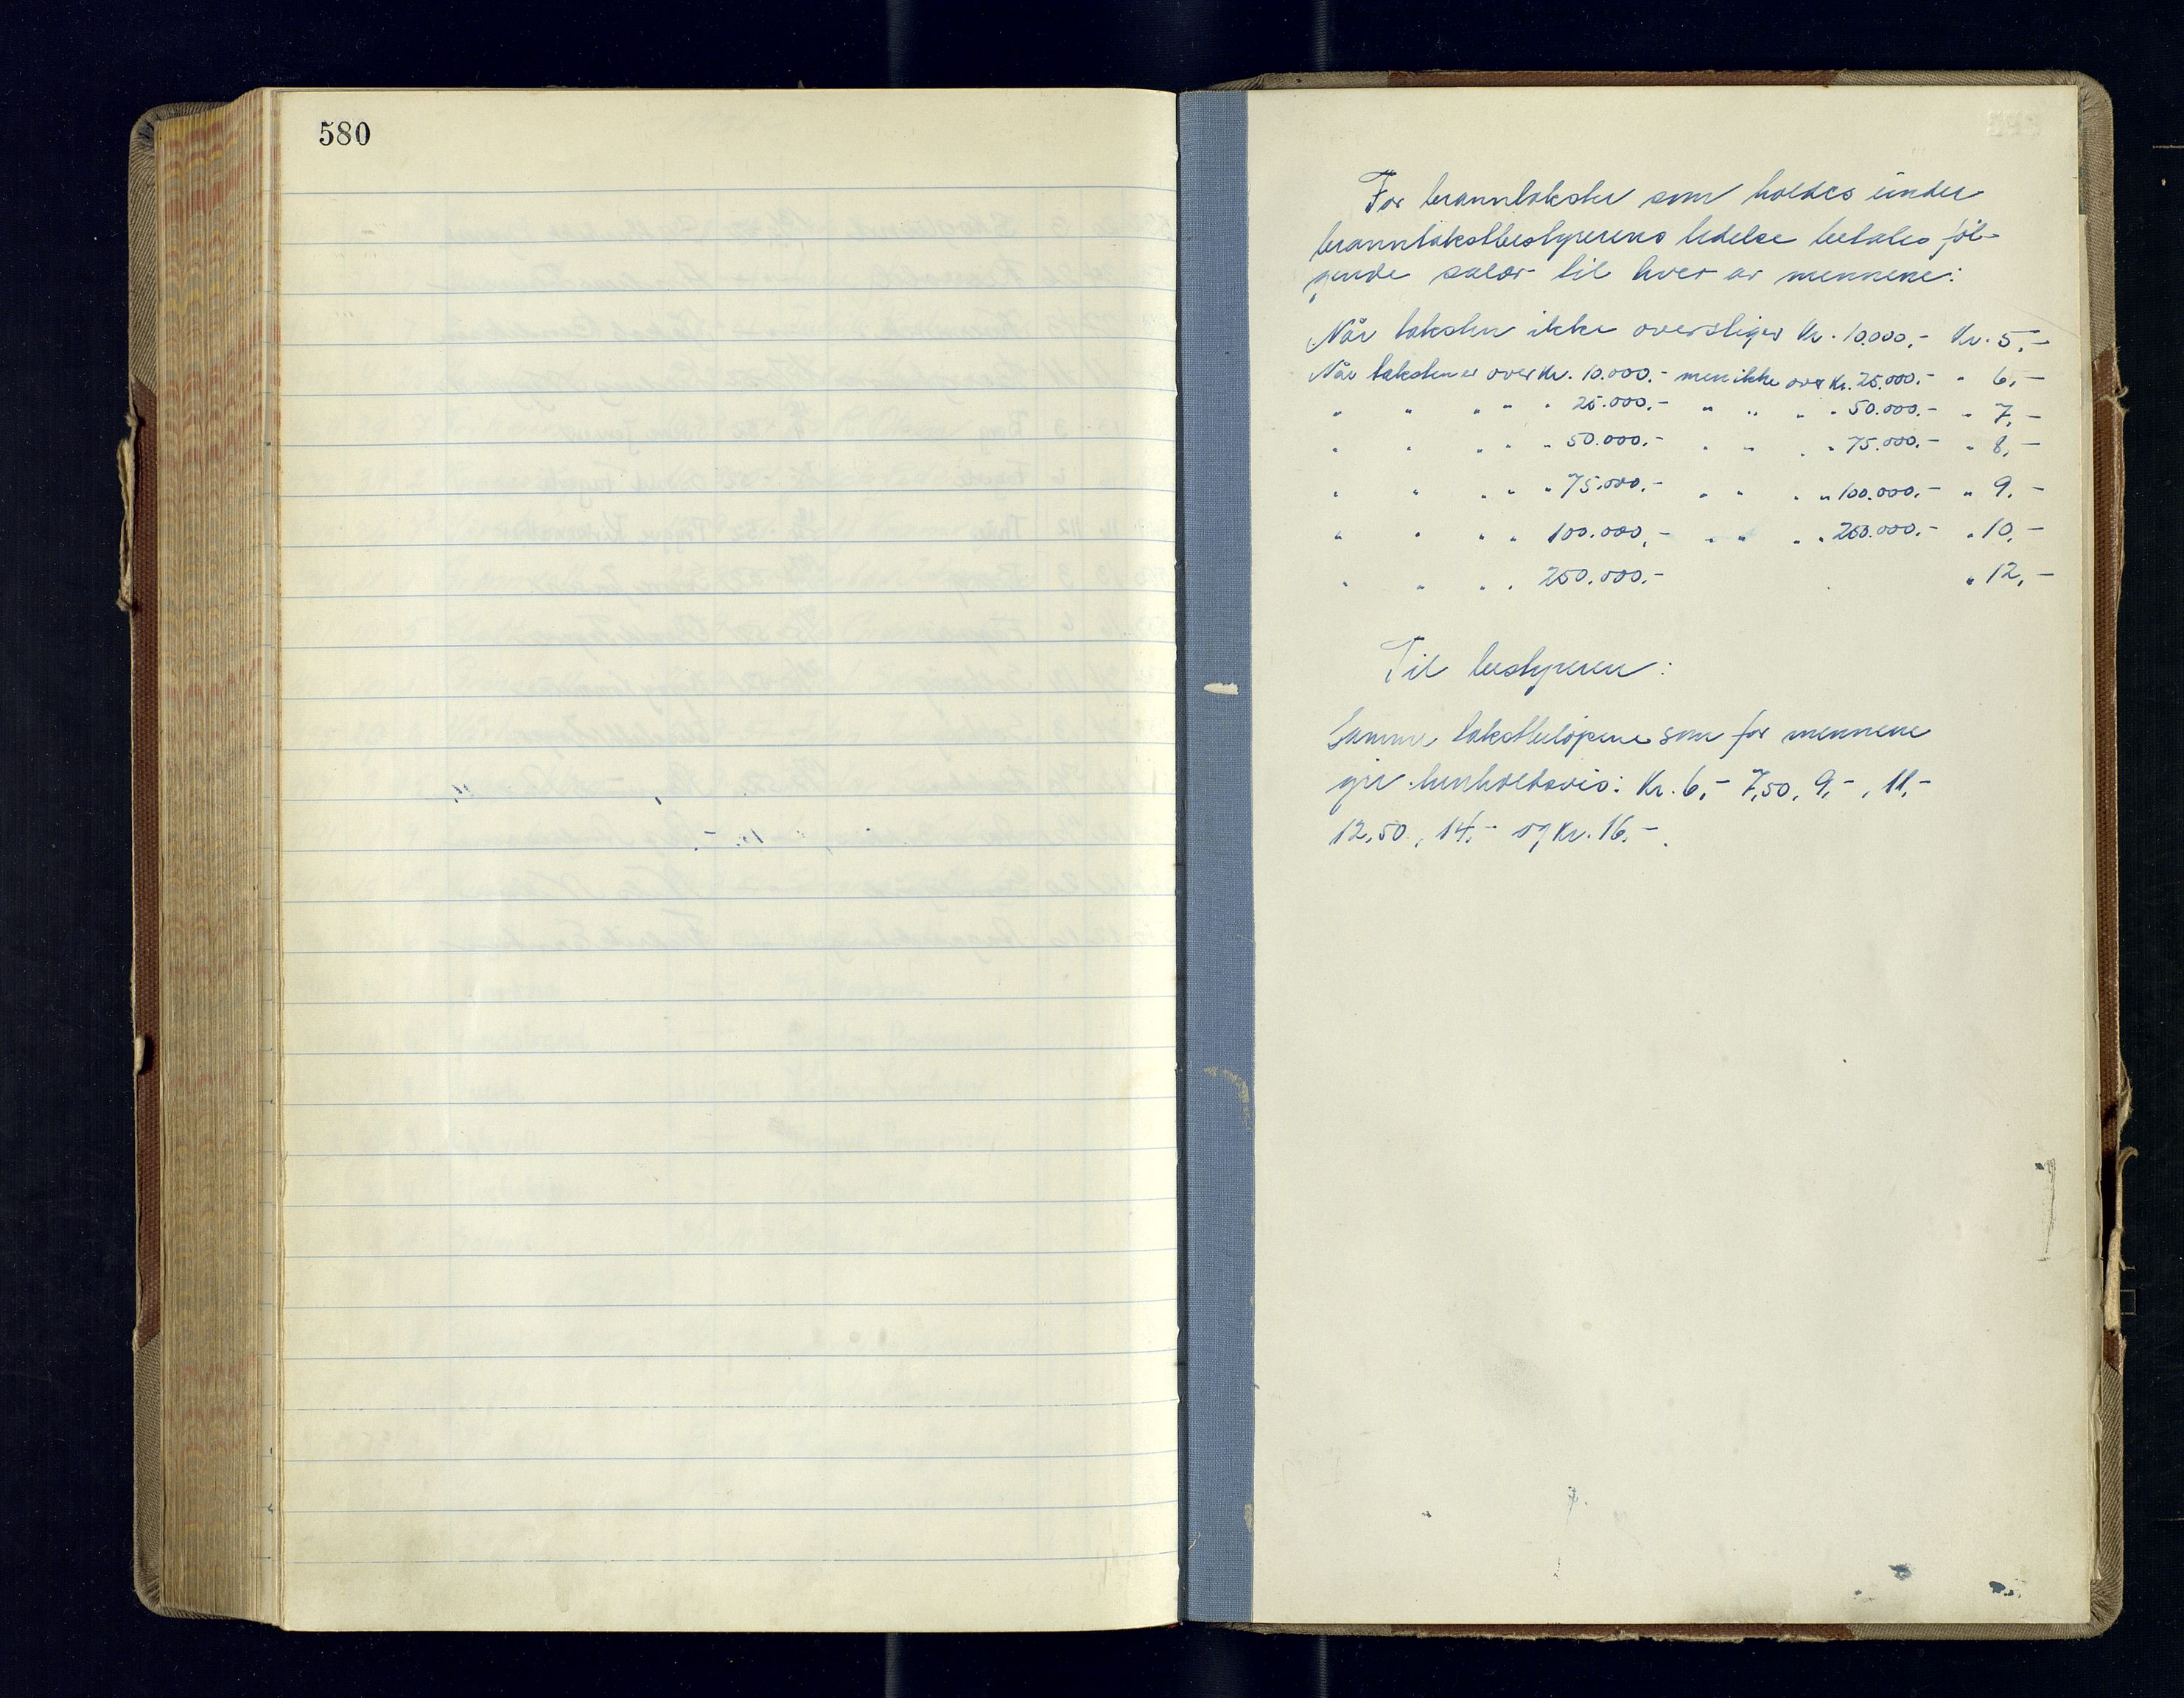 580
For branntakster som holdes under
branntakstbestyrerens ledelse betales föl-
gende salær til hver av mennene:
Når taksten ikke overstiger Kr. 10.000,- Kr. 5,-
Når taksten er over Kr. 10.000.- men ikke over Kr. 25.000.- " 6,-
" " " " " 25.000.- " " " " 50.000.- " 7,-
" " " " " 50.000.- " " " " 75.000.- " 8,-
" " " " " 75.000.- " " " " 100.000.- " 9,-
" " " " 100.000,- " " " " 250.000.- " 10,-
" " " " 250.000.- " 12,-
Til bestyreren:
Samme takstbelöpene som for mennene
gir henholdsvis: Kr. 6,- 7,50, 9,-, 11,-
12,50, 14,- og Kr. 16,-.